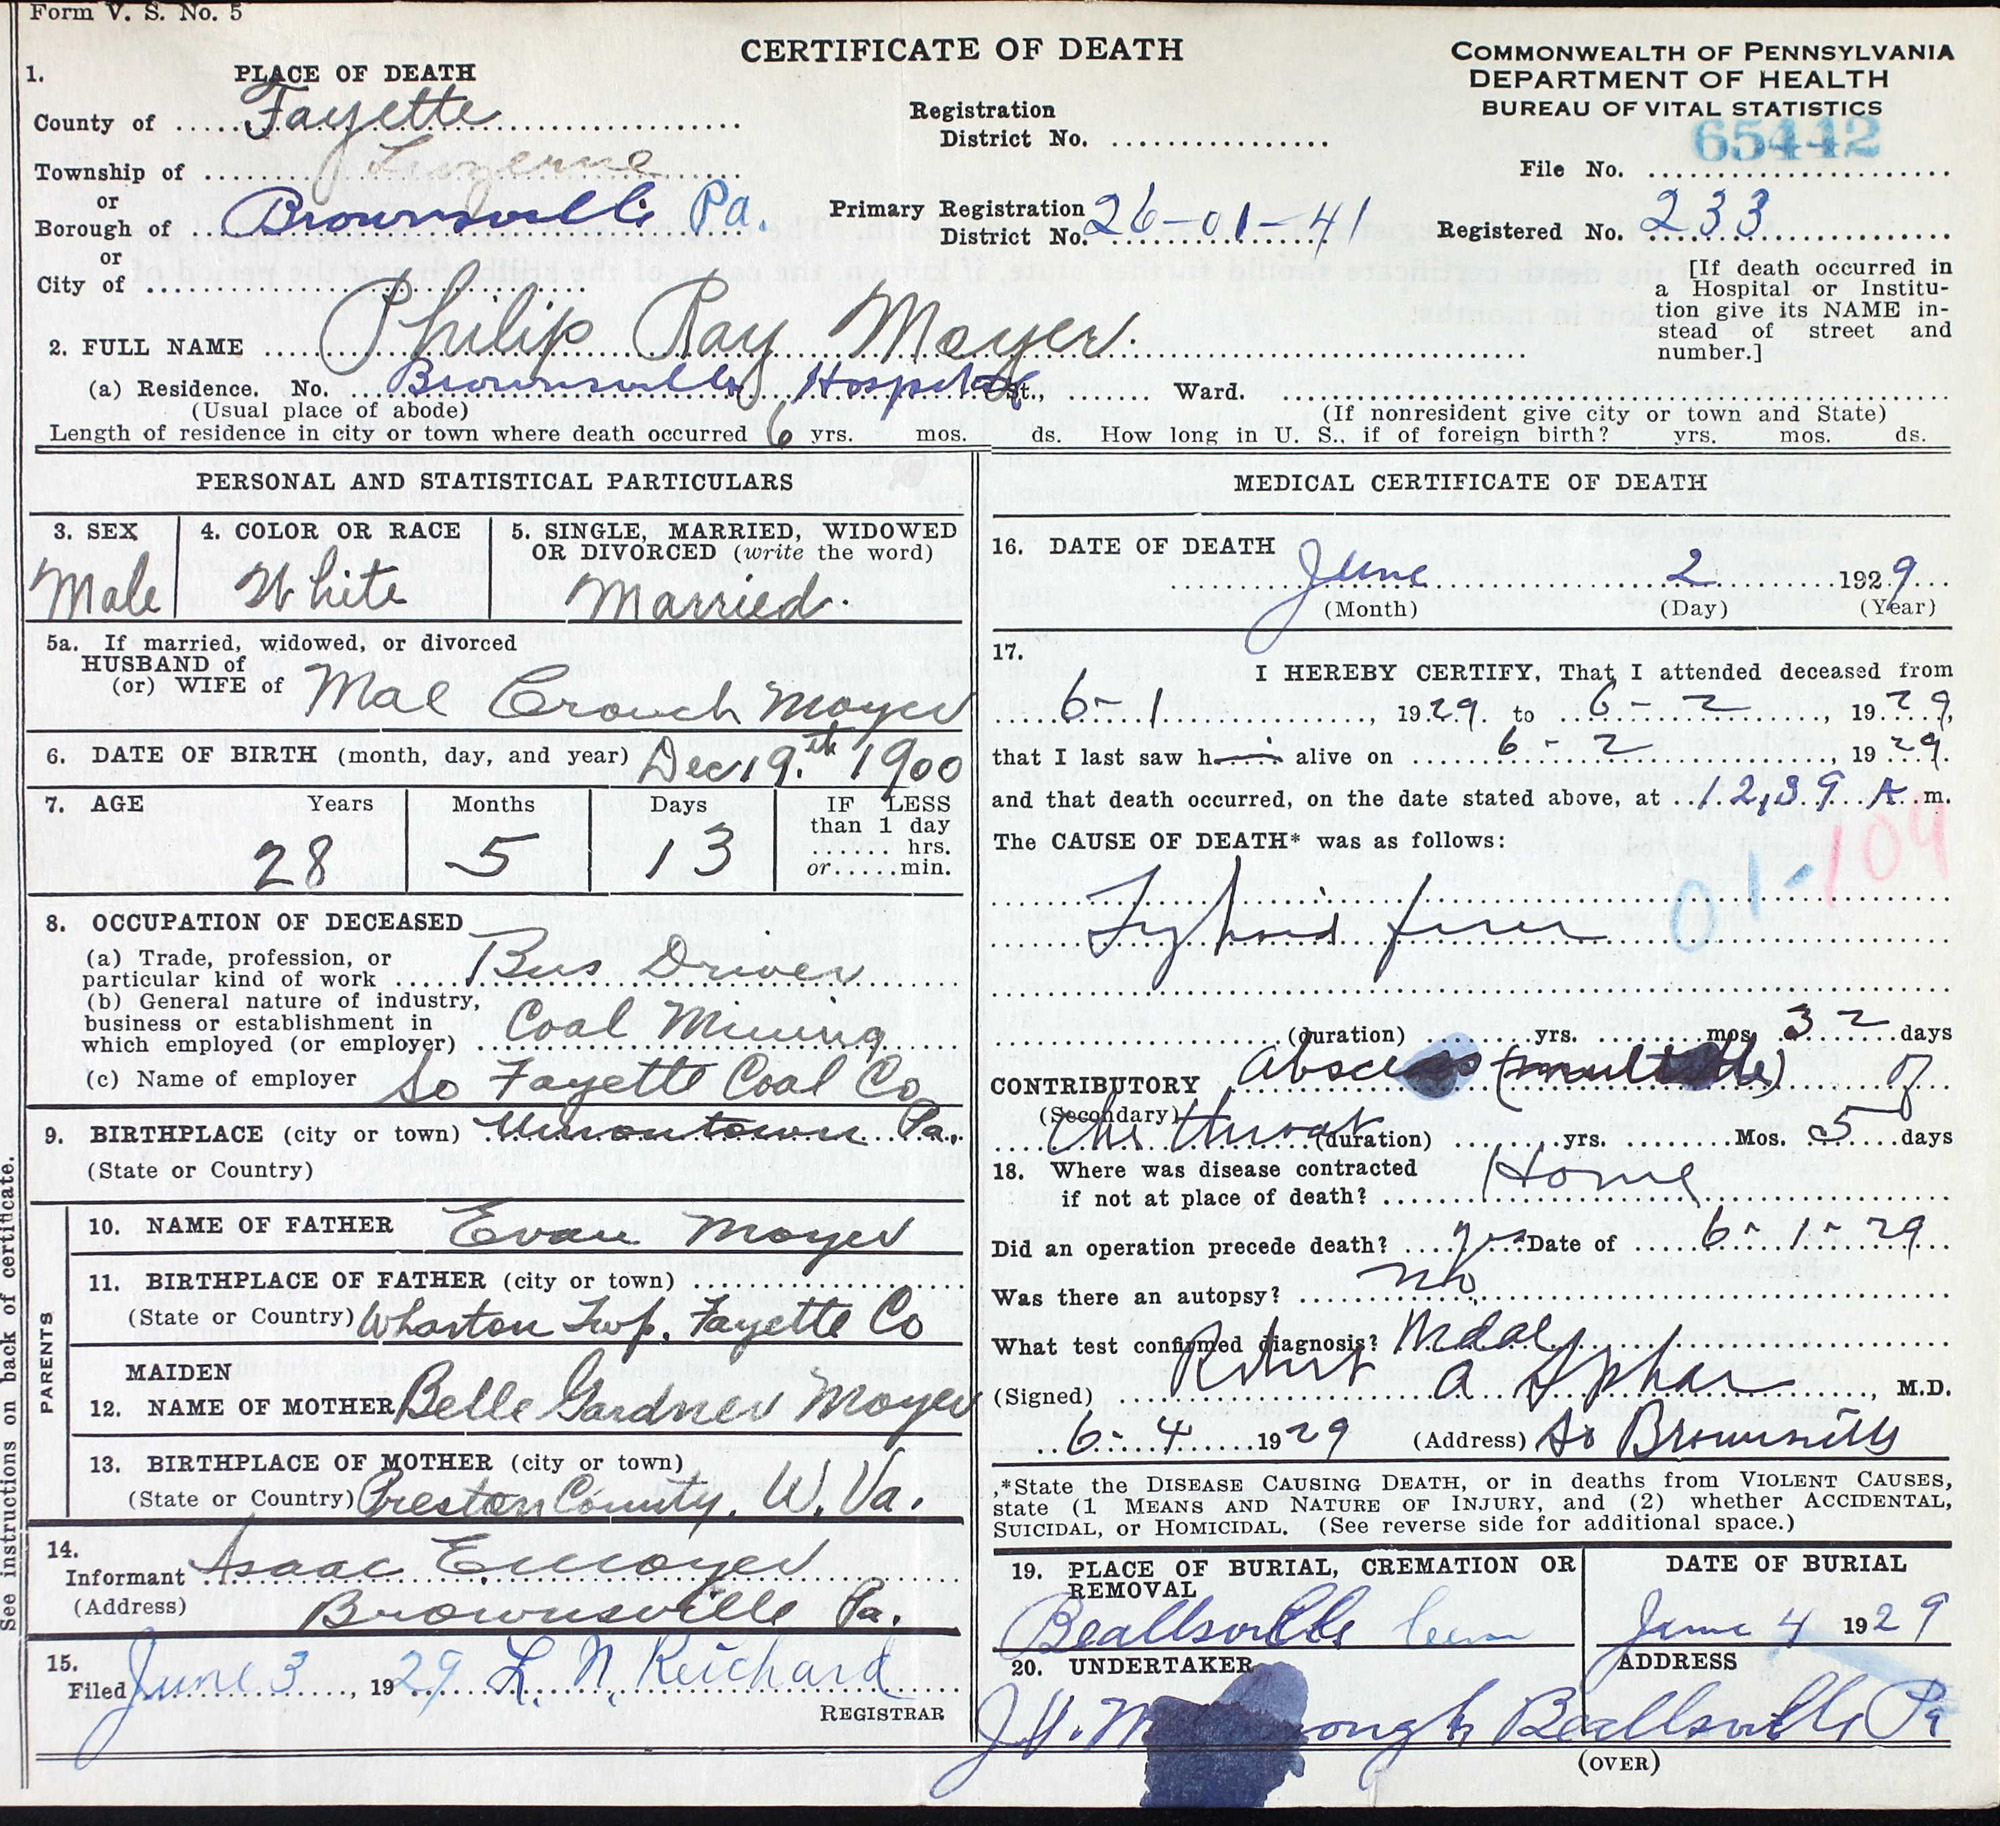 Form V. S. No. 5
CERTIFICATE OF DEATH
COMMONWEALTH OF PENNSYLVANIA
DEPARTMENT OF HEALTH
BUREAU OF VITAL STATISTICS
1. PLACE OF DEATH
County of Fayette
Registration District No.
65442
File No.
Township of Luzerne
or
Borough of Brownsville Pa.
Primary Registration District No. 26-01-41
Registered No. 233
or
City of
[If death occurred in
a Hospital or Institu-
tion give its NAME in-
stead of street and
number.]
2. FULL NAME Philip Ray Moyer.
(a) Residence. No. Brownsville Hospital St., Ward.
(Usual place of abode)
(If nonresident give city or town and State)
Length of residence in city or town where death occurred 6 yrs. mos. ds. How long in U. S., if of foreign birth? yrs. mos. ds.
PERSONAL AND STATISTICAL PARTICULARS
3. SEX
Male
4. COLOR OR RACE
White
5. SINGLE, MARRIED, WIDOWED
OR DIVORCED (write the word)
Married.
5a. If married, widowed, or divorced
HUSBAND of
(or) WIFE of Mae Crouch Moyer
6. DATE OF BIRTH (month, day, and year) Dec 19.th 1900
7. AGE Years Months Days
28 5 13
IF LESS
than 1 day
hrs.
or min.
8. OCCUPATION OF DECEASED
(a) Trade, profession, or
particular kind of work Bus Driver
(b) General nature of industry,
business or establishment in
which employed (or employer) Coal Mining
(c) Name of employer So Fayette Coal Co
9. BIRTHPLACE (city or town) Uniontown Pa.
(State or Country)
PARENTS
10. NAME OF FATHER Evan Moyer
11. BIRTHPLACE OF FATHER (city or town)
(State or Country) Wharton Twp. Fayette Co
MAIDEN
12. NAME OF MOTHER Belle Gardner Moyer
13. BIRTHPLACE OF MOTHER (city or town)
(State or Country) Preston County. W. Va.
14.
Informant Isaac E. Moyer
(Address) Brownsville Pa.
15.
Filed June 3, 1929 L. N. Reichard
REGISTRAR
See instructions on back of certificate.
MEDICAL CERTIFICATE OF DEATH
16. DATE OF DEATH
June 2 1929
(Month) (Day) (Year)
17.
I HEREBY CERTIFY, That I attended deceased from
6-1, 1929. to 6-2, 1929,
that I last saw h alive on 6-2, 1929.
and that death occurred, on the date stated above, at 12,39 A. m.
The CAUSE OF DEATH* was as follows:
01-109
Typhoid fever
(duration) yrs. mos. 32 days
CONTRIBUTORY Abscess (multiple) of
(Secondary)
the throat (duration) yrs. Mos. 5 days
18. Where was disease contracted
if not at place of death? Home
Did an operation precede death? yes Date of 6-1-29
Was there an autopsy? no
What test confirmed diagnosis?
(Signed) Robert A, M.D.
6-4 1929 (Address) So Brownsville
*State the DISEASE CAUSING DEATH, or in deaths from VIOLENT CAUSES,
state (1 MEANS AND NATURE OF INJURY, and (2) whether ACCIDENTAL,
SUICIDAL, or HOMICIDAL. (See reverse side for additional space.)
19. PLACE OF BURIAL, CREMATION OR
REMOVAL
Beallsville Cem
DATE OF BURIAL
June 4 1929
20. UNDERTAKER
ADDRESS
Beallsville Pa
(OVER)